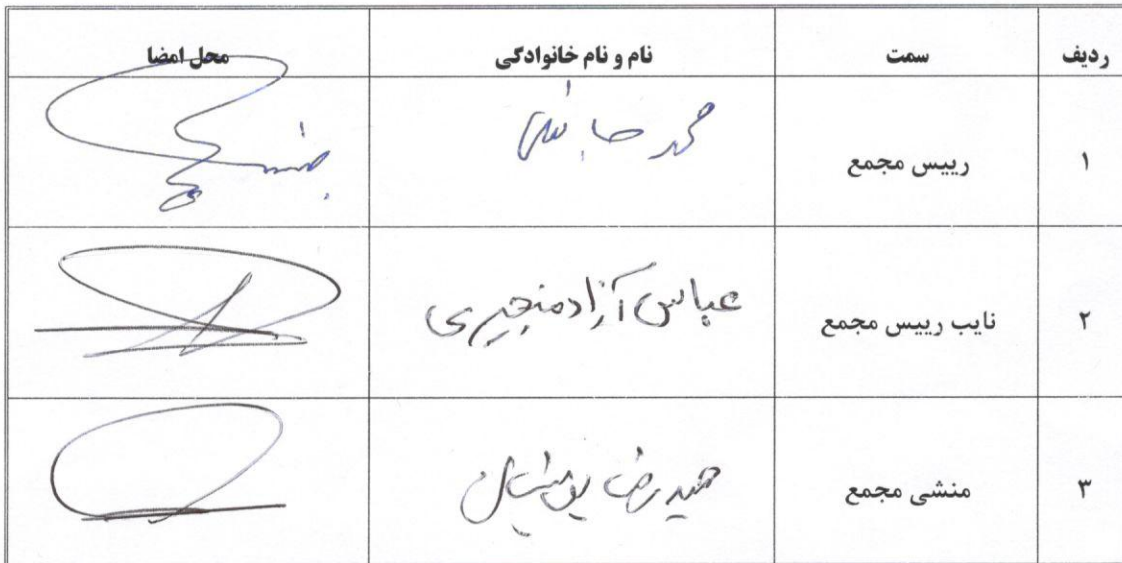 ردیف سمت نام و نام خانوادگی محل امضا
۱ رییس مجمع محمد
۲ نایب رییس مجمع عباس آزادمنجیری
۳ منشی مجمع حمیدرضا